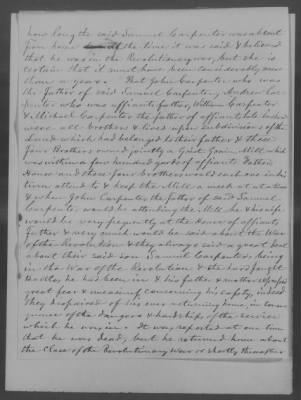 how long the said Samuel Carpenter was absent
from home at the time it was said & believed
that he was in the Revolutionary war, but she is
certain that it must have been considerably more
than a year. That John Carpenter who was
the father of said Samuel Carpenter, Andrew Car-
penter who was affiants father, William Carpenter
& Michael Carpenter the father of affiants
were all brothers & lived upon subdivisions of the
land which had belonged to their father & these
four Brothers owned jointly a Grist Mill which
was within a few hundred yards of affiants Fathers
House and these four brothers would each one in his
turn attend to & keep the Mill a week at a time
& when John Carpenter the father of said Samuel
Carpenter would be attending the Mill he & his wife
would be very frequently at the House of affiants
father & very much would be said about the War
of the Revolution & they always said a great deal
about their said son Samuel Carpenter being
in the War of the Revolution & the hard fought
battles he had been in & his father & mother
great fear & uneasiness concerning his safety, indeed
they despaired of his ever returning home, in conse-
quence of the dangers & hardships of the service
which he was in. It was reported at one time
that he was dead, but he returned home about
the close of the Revolutionary War or shortly thereafter